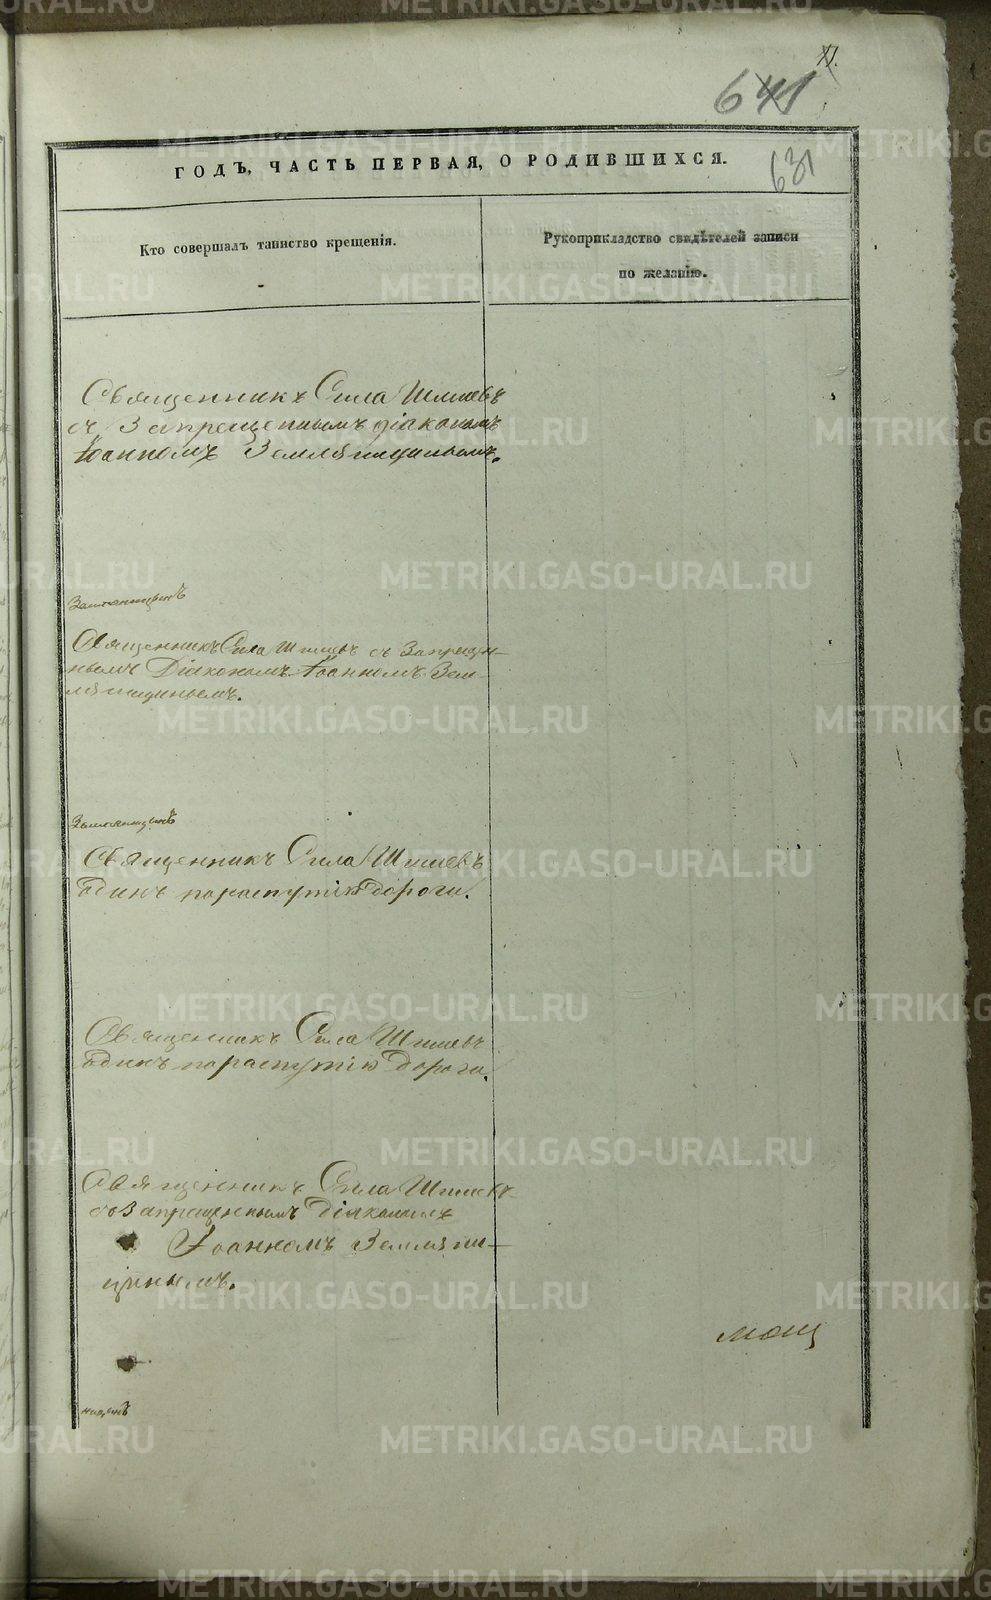 641
631
ГОДЪ, ЧАСТЬ ПЕРВАЯ, О РОДИВШИХСЯ.
Кто совершалъ таинство крещенія.
Рукоприкладство свидѣтелей записи
по желанію.
Священникъ Сила Шишевъ
съ Запрещеннымъ діакономъ
Іоанномъ Земляницынымъ.
Священникъ Сила Шишевъ съ Запрещен-
нымъ Діакономъ Іоанномъ Зем-
ляницынымъ.
Священникъ Сила Шишевъ
одинъ по распутію дороги.
Священникъ Сила Шишевъ
одинъ по распутію дороги.
Священникъ Сила Шишевъ
со Запрещеннымъ Діакономъ
Іоанномъ Земляни-
цынымъ.
METRIKI.GASO-URAL.RU